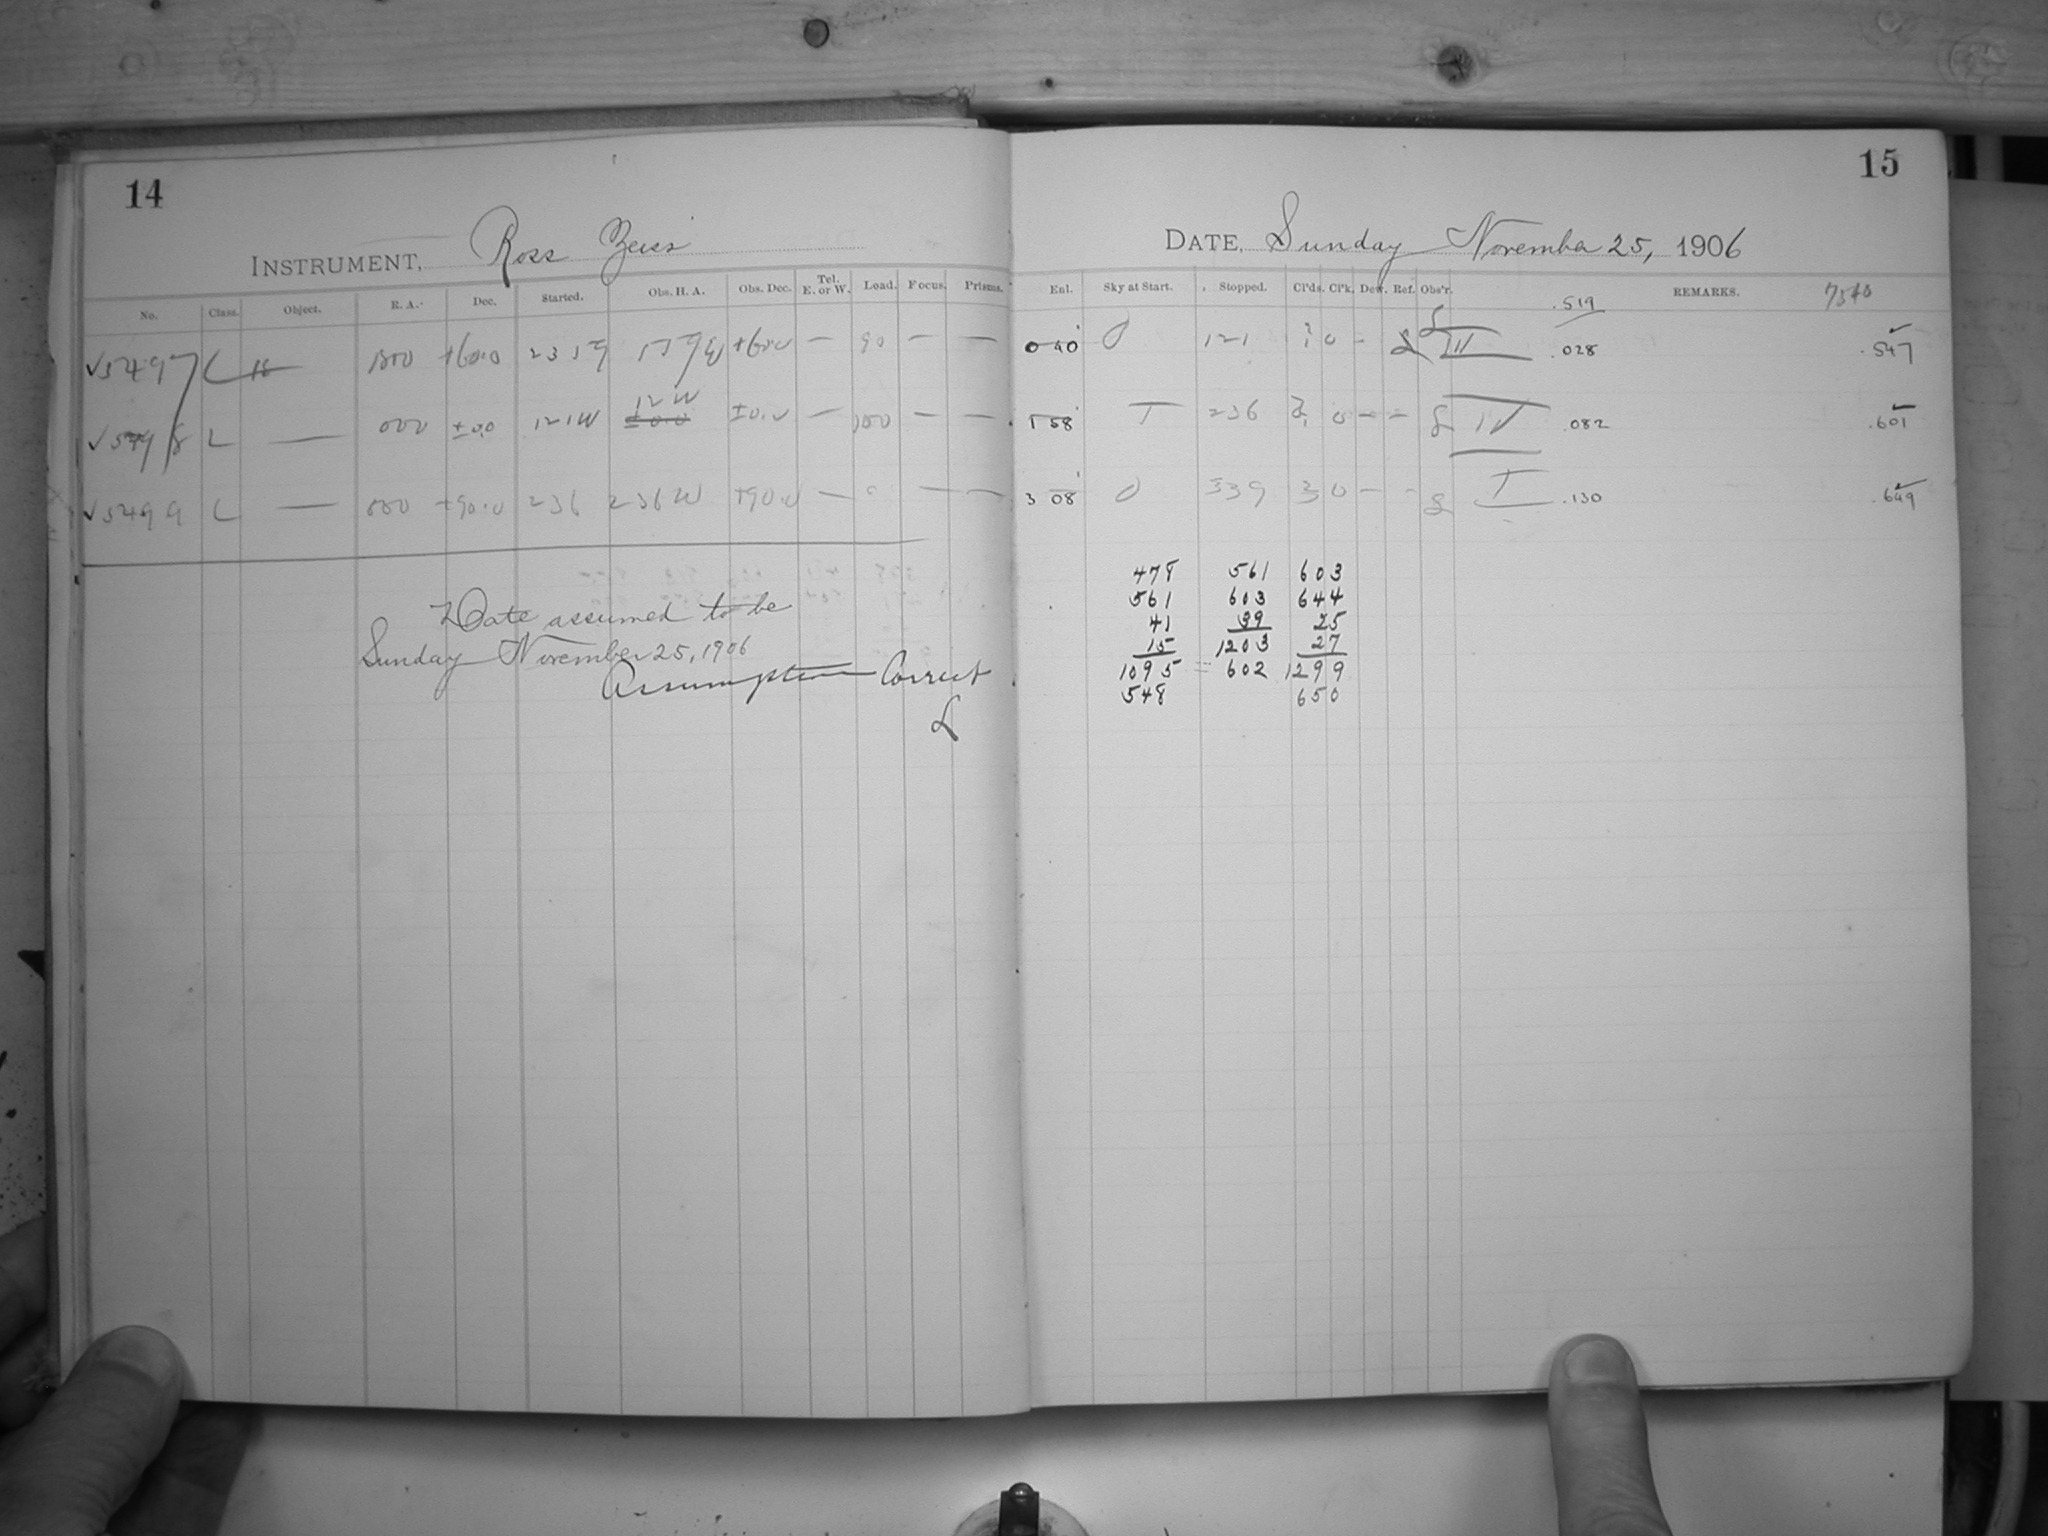 14
INSTRUMENT, Ross Zeiss
No. Class. Object. R. A. Dec. Started. Obs. H. A. Obs. Dec. Tel. E. or W. Load. Focus. Prisms.
√5497 L 1800 +60.0 2359 +60.0 — 90 — —
√5498 L — 000 ±0.0 121W 12W ±0.0 — 100 — —
√5499 L — 000 +90.0 236 236W +90.0 — 0 — —
Date assumed to be
Sunday November 25, 1906
Assumption Correct
L
15
DATE, Sunday November 25, 1906
Enl. Sky at Start. Stopped. Cl'ds. Cl'k. Dew. Ref. Obs'r. REMARKS.
.519
0 40 0 121 0 - .028 .547
1 58 236 0 - - IV .082 .601
3 08 0 339 3 0 - - I .130 .649
478 561 603
561 603 644
41 39 25
15 1203 27
1095 = 602 1299
548 650